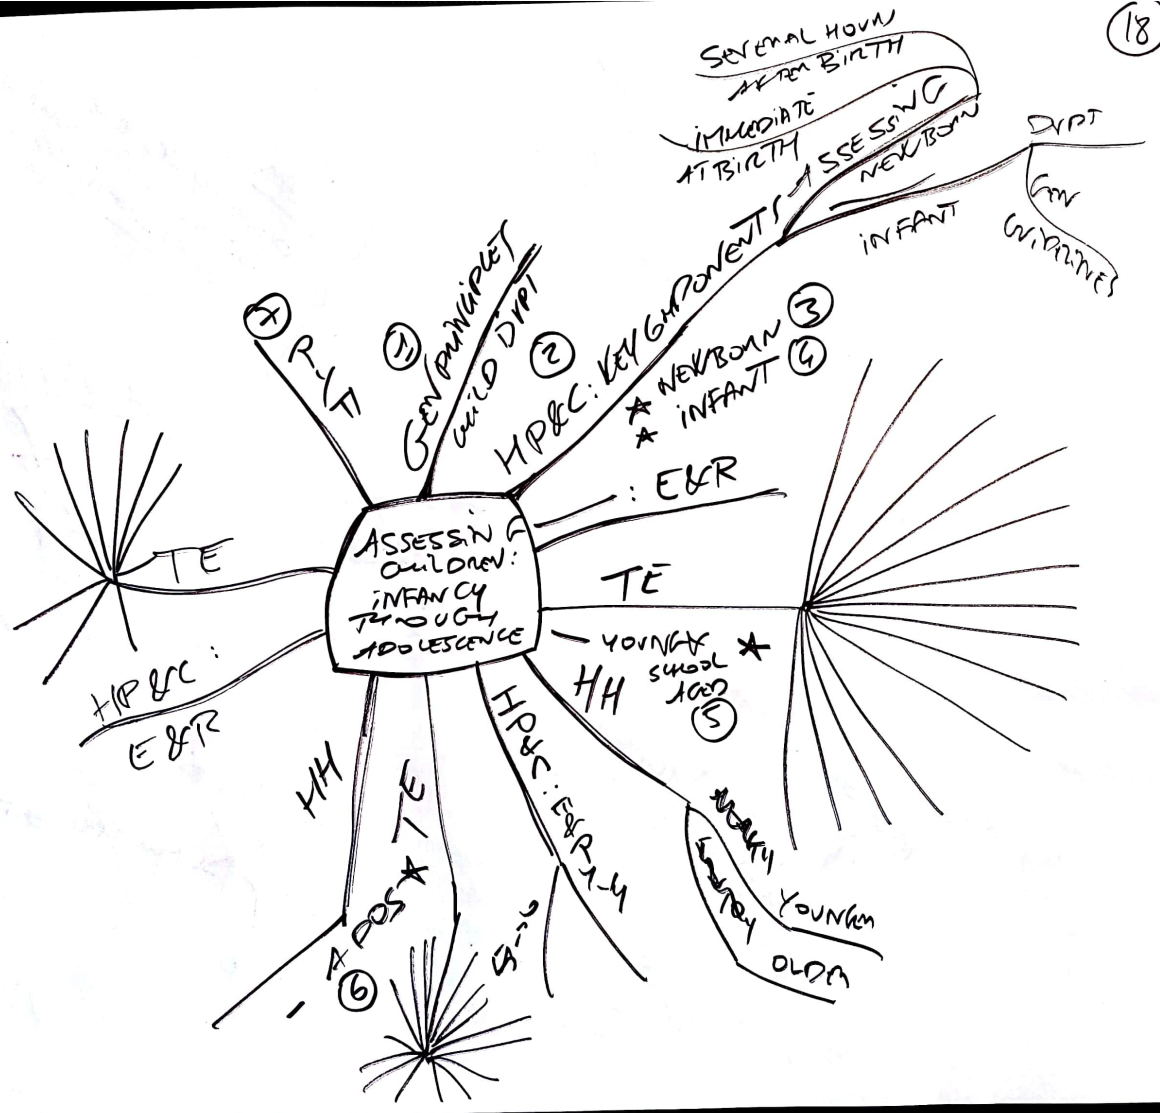 18
SEVERAL HOURS
AFTER BIRTH
IMMEDIATE
AT BIRTH
ASSESSING
NEWBORN
INFANT
DVPT
GEN
GUIDELINES
7
R-YT
1
GEN PRINCIPLES
CHILD DVPT
2
HP&C: KEY COMPONENTS
★ NEWBORN 3
★ INFANT 4
: E&R
TE
ASSESSING
CHILDREN:
INFANCY
THROUGH
ADOLESCENCE
TE
HP&C:
E&R
YOUNG ★
SCHOOL
AGED
5
HH
YOUNGER
OLDER
HP&C: E&R
1-4
5-10
TE
HH
ADOS ★
6